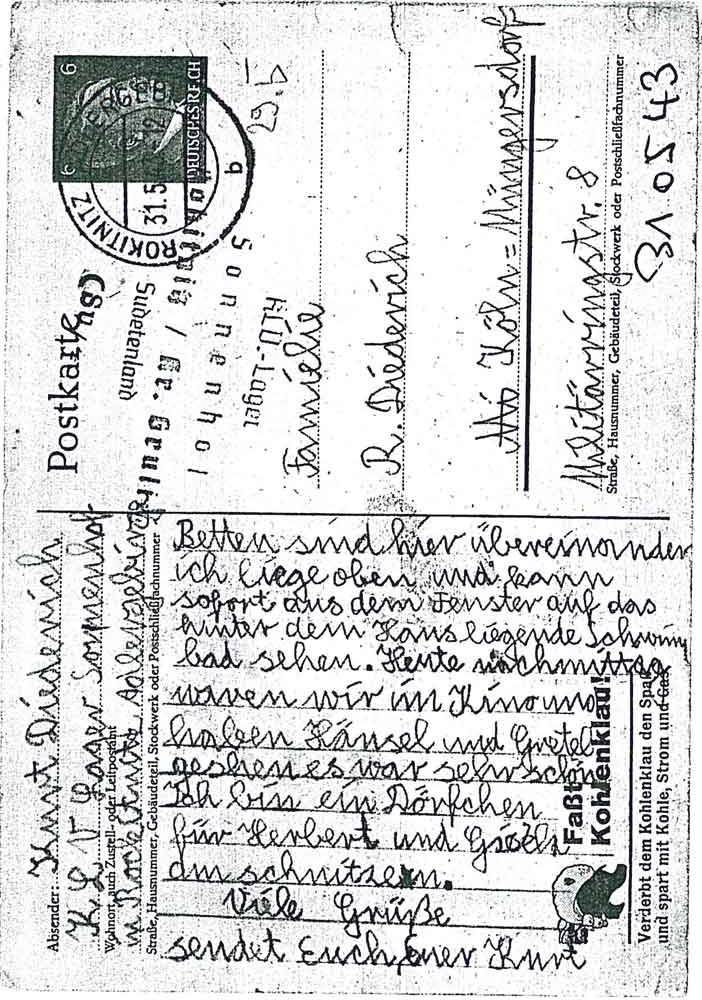 Postkarte
6
6
DEUTSCHES REICH
ROKITNITZ
31.5
b
29.5
KLV-Lager
Sonnenhof
Rokitnitz / Kr. Grulich
Sudetenland
Familie
R. Diederich
Köln = Müngersdorf
Militärringstr. 8
Straße, Hausnummer, Gebäudeteil, Stockwerk oder Postschließfachnummer
31 05 43
Absender: Kurt Diederich
K L V Lager Sonnenhof
Wohnort, auch Zustell- oder Leitpostamt
in Rockitnitz Adlergebirge
Straße, Hausnummer, Gebäudeteil, Stockwerk oder Postschließfachnummer
Betten sind hier übereinander
ich liege oben und kann
sofort aus dem Fenster auf das
hinter dem Haus liegende Schwimm
bad sehen. Heute nachmittag
waren wir im Kino und
haben Hänsel und Gretel
gesehen es war sehr schön
Ich bin ein Dörfchen
für Herbert und Gisela
am schnitzern.
Viele Grüße
sendet Euch, Euer Kurt
Faßt
Kohlenklau!
Verderbt dem Kohlenklau den Spaß
und spart mit Kohle, Strom und Gas